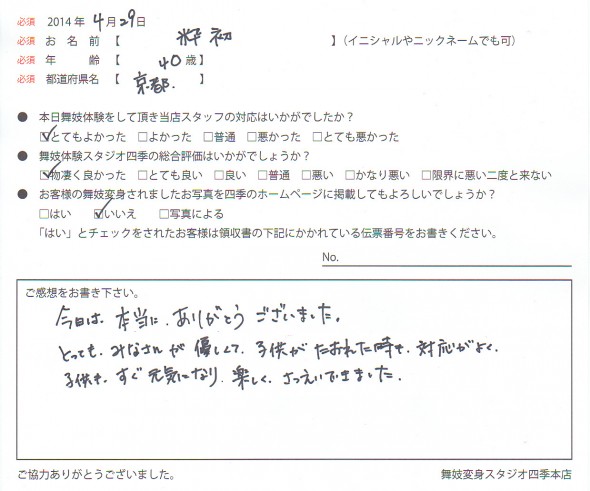 必須 2014年 4月29日
必須 お名前【 粋初 】(イニシャルやニックネームでも可)
必須 年齢【 40歳】
必須 都道府県名【 京都. 】
● 本日舞妓体験をして頂き当店スタッフの対応はいかがでしたか?
☑とてもよかった □よかった □普通 □悪かった □とても悪かった
● 舞妓体験スタジオ四季の総合評価はいかがでしょうか?
☑物凄く良かった □とても良い □良い □普通 □悪い □かなり悪い □限界に悪い二度と来ない
● お客様の舞妓変身されましたお写真を四季のホームページに掲載してもよろしいでしょうか?
□はい ☑いいえ □写真による
「はい」とチェックをされたお客様は領収書の下記にかかれている伝票番号をお書きください。
No.
ご感想をお書き下さい。
今日は、本当に、ありがとうございました。
とっても、みなさんが優しくて、子供がたおれた時も、対応がよく、
子供も、すぐ元気になり、楽しく、さつえいできました。
ご協力ありがとうございました。 舞妓変身スタジオ四季本店